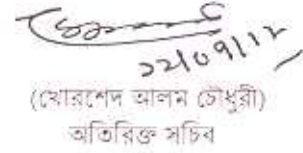 ২২/০৭/১২
(খোরশেদ আলম চৌধুরী)
অতিরিক্ত সচিব